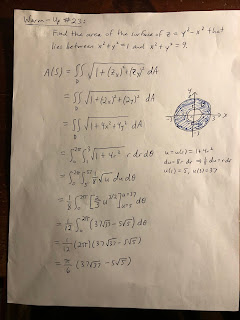 Warm-Up #23:
Find the area of the surface of z = y² - x² that
lies between x² + y² = 1 and x² + y² = 9.
A(S) = ∬_D √(1 + (z_x)² + (z_y)²) dA
= ∬_D √(1 + (2x)² + (2y)²) dA
= ∬_D √(1 + 4x² + 4y²) dA
= ∫₀^2π ∫₁³ √(1 + 4r²) r dr dθ
u = u(r) = 1 + 4r²
du = 8r dr ⇒ ⅛ du = r dr
u(1) = 5, u(3) = 37
= ∫₀^2π ∫₅^37 ⅛ √u du dθ
= ⅛ ∫₀^2π [⅔ u^3/2]_u=5^u=37 dθ
= 1/12 ∫₀^2π (37√37 - 5√5) dθ
= 1/12 (2π)(37√37 - 5√5)
= π/6 (37√37 - 5√5)